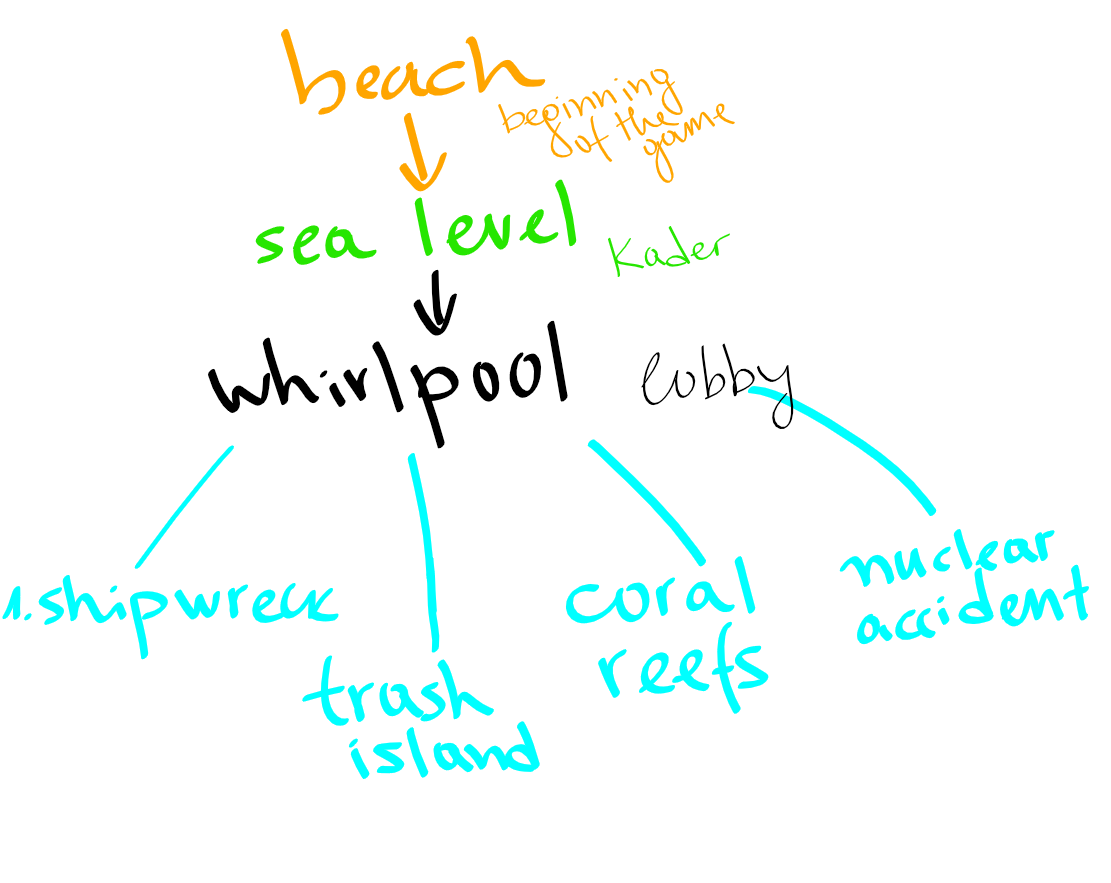 beach
beginning
of the
game
sea level
Kader
whirlpool
lobby
1. shipwreck
trash
island
coral
reefs
nuclear
accident